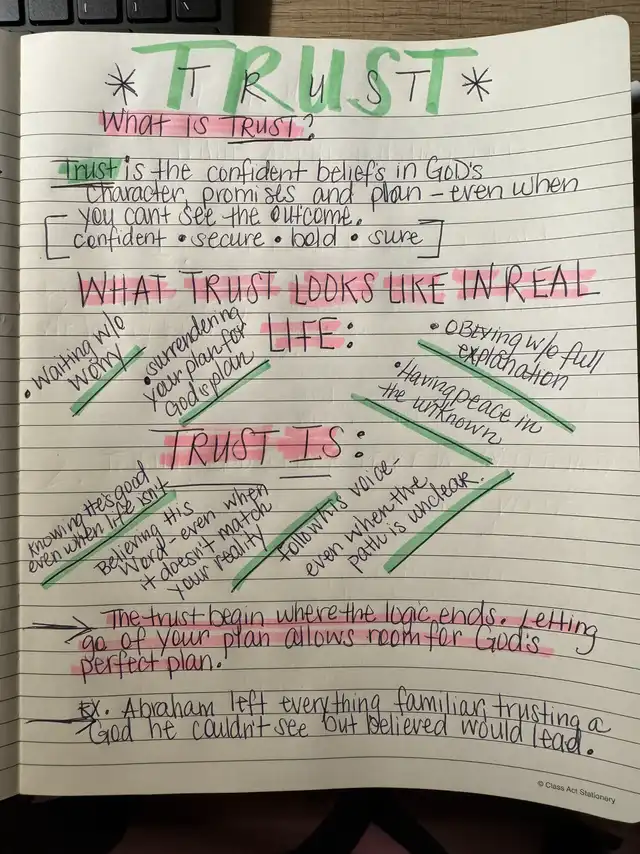 TRUST
* T R U S T *
What IS TRUST?
Trust is the confident beliefs in GOD's
character, promises and plan - even when
you cant see the outcome.
[confident • secure • bold • sure]
WHAT TRUST LOOKS LIKE IN REAL
LIFE:
• Waiting w/o
worry
• surrendering
your plan for
God's plan
• OBEYING w/o full
explanation
• Having peace in
the unknown
TRUST IS:
Knowing He's good
even when life isn't
Believing His
Word - even when
it doesn't match
your reality
Follow his voice -
even when the
path is unclear.
The trust begin where the logic ends. Letting
go of your plan allows room for God's
perfect plan.
EX. Abraham left everything familiar, trusting a
God he couldn't see but believed would lead.
© Class Act Stationary